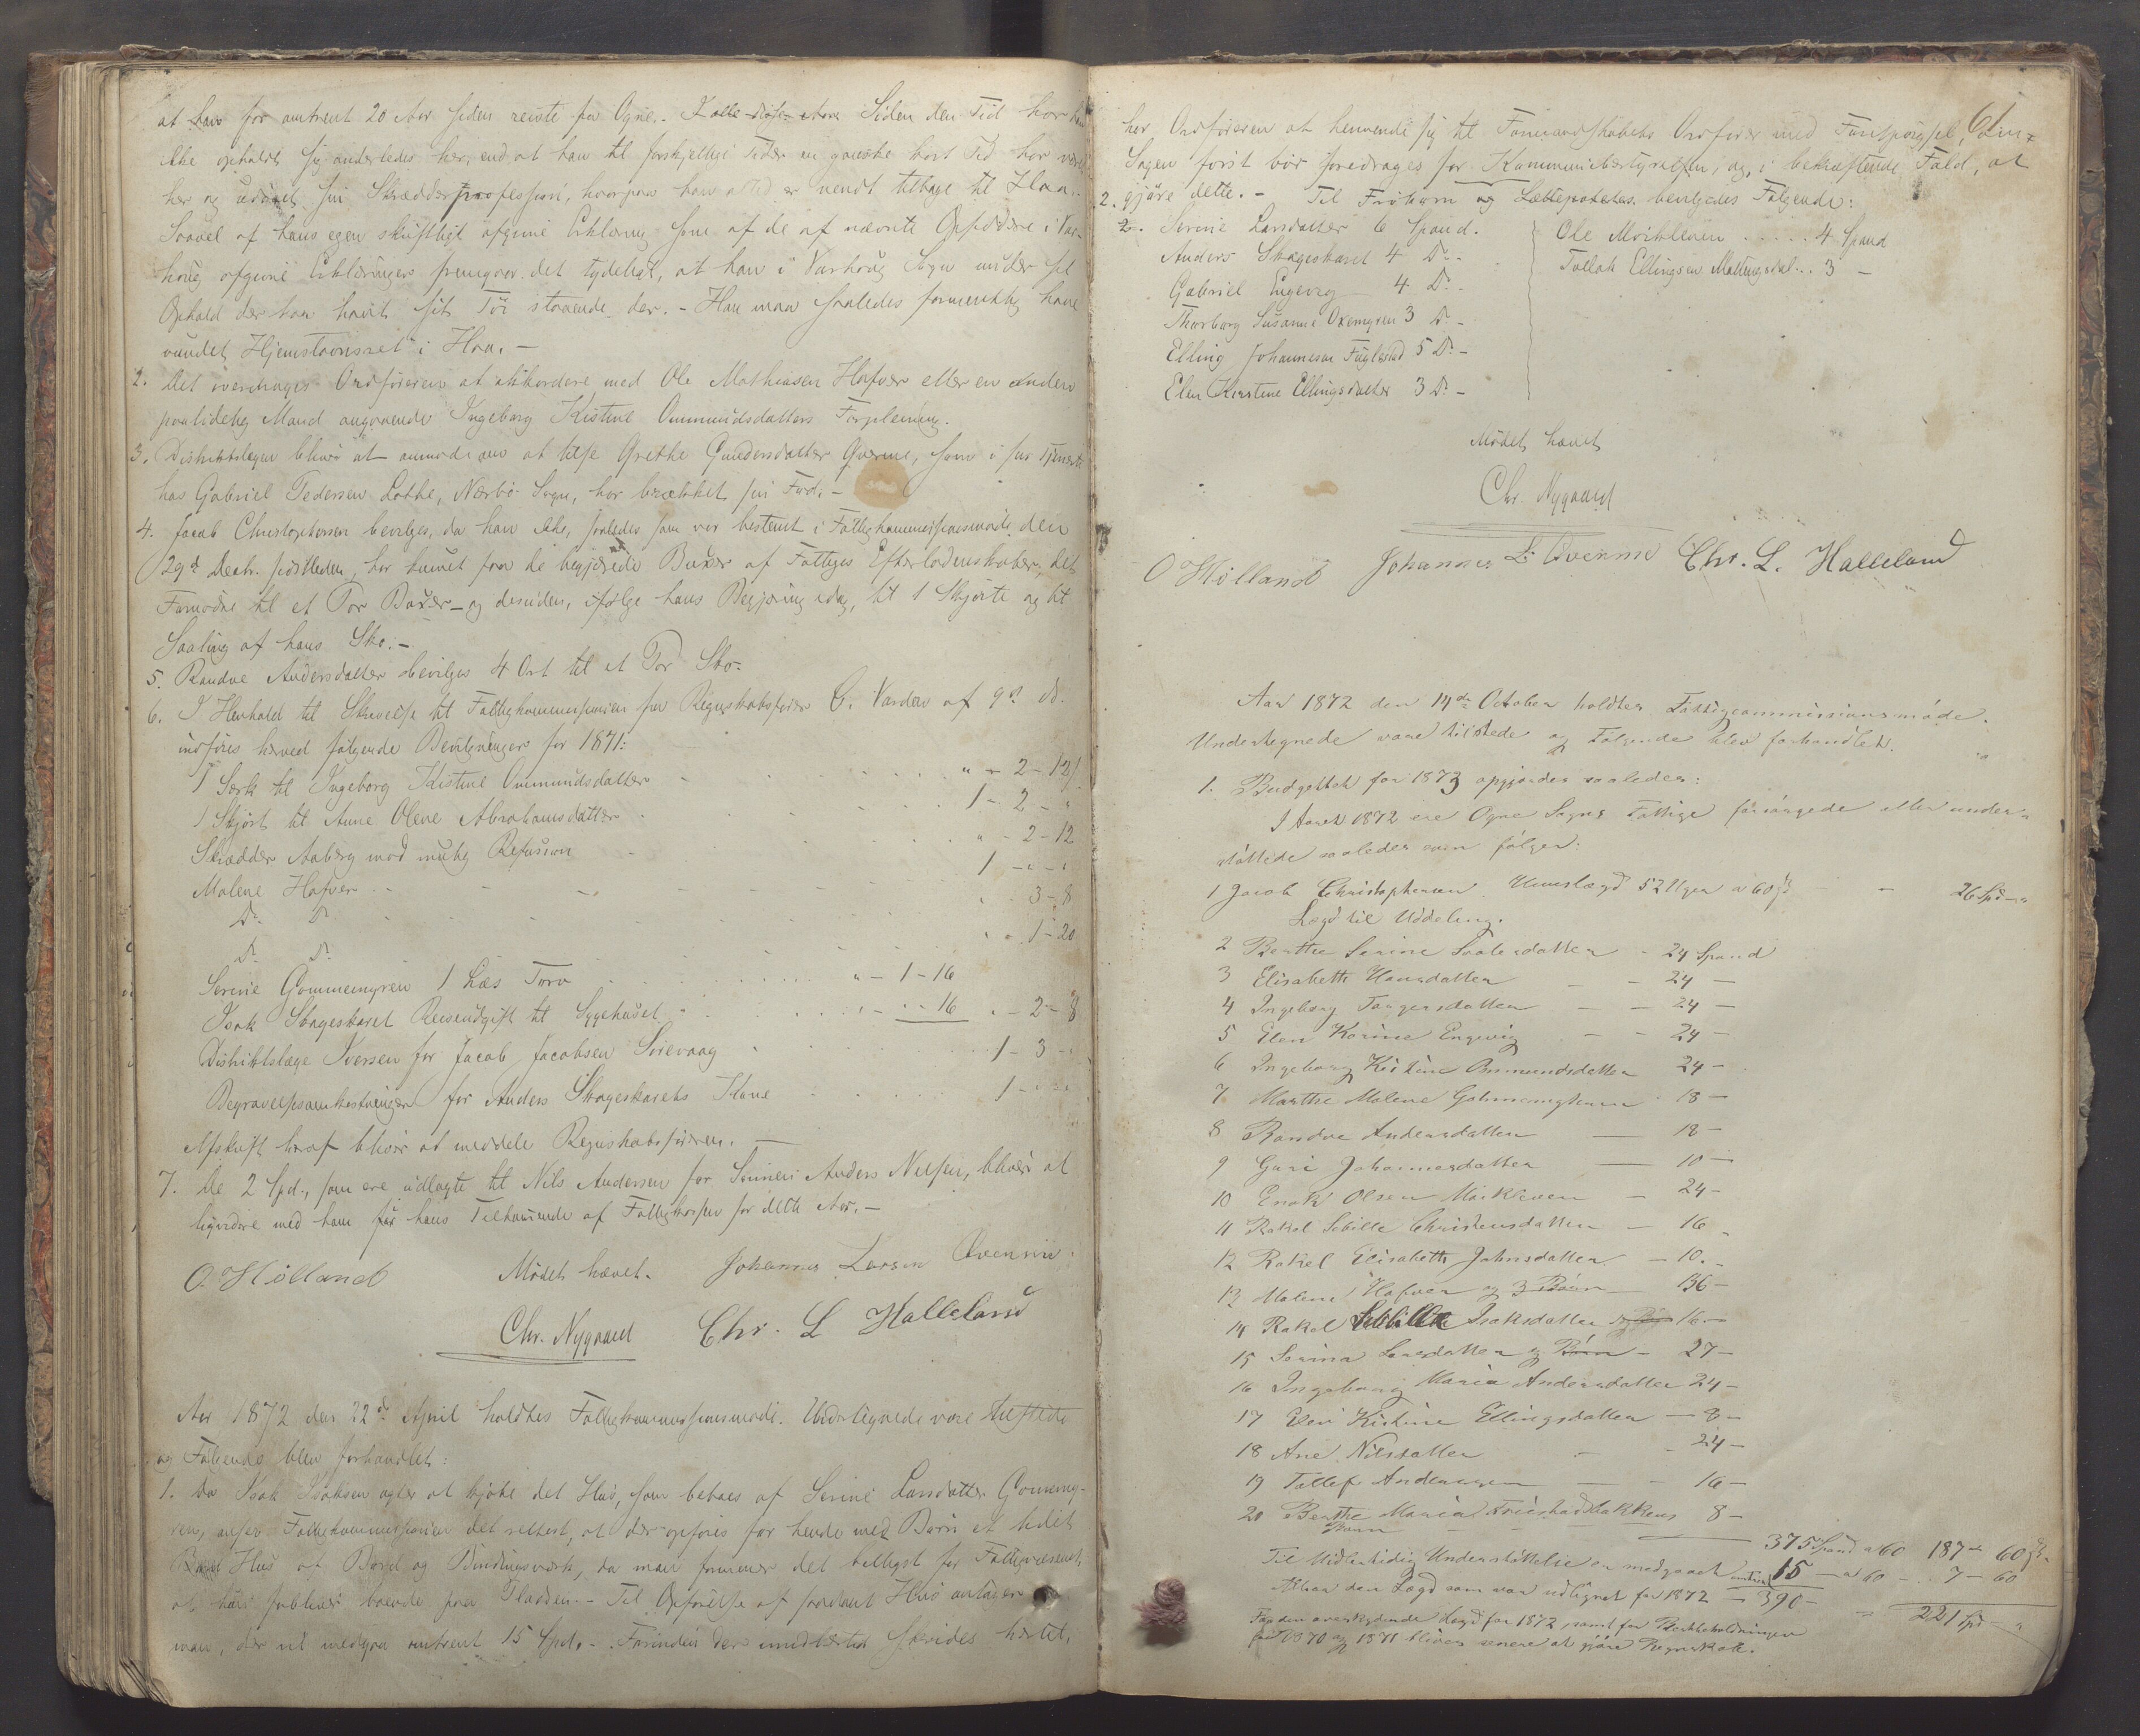 at han for omtrent 20 Aar siden reiste fra Ogne. - Siden den Tid har han
ikke opholdt sig anderledes her, end at han til forskjellige Tider en ganske kort Tid har været
her og udøvet sin Skrædderprofession, hvorpaa han altid er vendt tilbage til Haa. -
Saavel af hans egen skriftligt afgivne Erklæring som af de af nævnte Opsiddere i Var-
houg afgivne Erklæringer fremgaar det tydeligt, at han i Varhoug Sogn under sit
Ophold der har havt sit Töi staaende der. - Han maa saaledes formentlig have
vundet Hjemstavnsret i Haa. -
2. Det overdrages Ordføreren at akkordere med Ole Mathiasen Hafver eller en anden
paalidelig Mand angaaende Ingeborg Kistine Ommundsdatters Forpleining.
3. Distriktslægen bliver at anmode om at tilse Grethe Gundersdatter Qverme, som i sin Tjeneste
hos Gabriel Pedersen Lothe, Nærbö Sogn, har brækket sin Fod. -
4. Jacob Christophersen bevilges, da han ikke, saaledes som var bestemt i Fattigkommissionsmöde den
29de Decbr. sidstleden, har kunnet faa de begjærede Buxer af Fattiges Efterladenskaber, det
Fornødne til et Par Buxer - og desuden, ifølge hans Begjæring idag, til 1 Skjorte og til
Saaling af hans Sko. -
5. Randve Andersdatter bevilges 4 Ort til et Par Sko -
6. I Henhold til Skrivelse til Fattigkommissionen fra Regnskabsfører C. Varden af 9de ds.
indføres herved følgende Bevilgninger for 1871:
1 Særk til Ingeborg Kistine Ommundsdatter " - 2 - 12
1 Skjört til Anne Olene Abrahamsdatter 1 - 2 - "
Skrædder Aaberg mod mulig Refusion " - 2 - 12
Malene Hafver 1 - " - "
Do. Do. " - 3 - 8
Do. Do. " - 1 - 20
Serine Gommemyren 1 Læs Torv " - 1 - 16
Isak Skageskaret Reiseudgift til Sygehuset " - " - 16 " - 2 - 8
Distriktslæge Iversen for Jacob Jacobsen Sirevaag 1 - 3 - "
Begravelsesomkostninger for Anders Skageskarets Kone 1 - " - "
Afskrift heraf bliver at meddele Regnskabsføreren. -
7. De 2 Spd., som ere udlagte til Nils Andersen for Sønnen Anders Nilsen, bliver at
liqvidere med ham for hans Tilkommende af Fattigkassen for dette Aar. -
Mödet hævet.
O. Hölland Johannes Larsen Qvernin
Chr. Nygaard Chr. L Halleland
Aar 1872 den 22de April holdtes Fattigkommissionsmöde. Undertegnede vare tilstede
og Følgende blev forhandlet:
1. Da Isak Isaksen agter at kjöbe det Hus, som beboes af Serine Larsdatter Gommemy-
ren, anser Fattigkommissionen det rettest, at der opføres for hende med Børn et lidet
Hus af Bord og Bindingsværk, da man formener det billigst for Fattigvæsenet,
at hun forbliver boende paa Pladsen. - Til Opførelse af saadant Hus antager
man, der vil medgaa omtrent 15 Spd. - Forinden der imidlertid skrides hertil,
61
har Ordføreren at henvende sig til Formandskabets Ordfører med Forespørgsel, om
Sagen först bör foredrages for Kommunebestyrelsen, og, i bekræftende Fald, at
gjöre dette. -
2. Til Frökorn og Sættepoteter bevilgedes Følgende:
Serine Larsdatter 6 Spand.
Anders Skageskaret 4 Do. -
Gabriel Engevig 4 Do. -
Thorborg Susanne Oxemyren 3 Do. -
Elling Johannesen Fuglestad 5 Do. -
Elen Kirstine Ellingsdatter 3 Do. -
Ole Moikleven . . . . . 4 Spand
Tollak Ellingsen Matningsdal . . . 3 -
Mödet hævet
Chr. Nygaard
O Hölland Johannes L. Qvernin Chr. L. Halleland
Aar 1872 den 14de October holdtes Fattigcommissionsmöde.
Undertegnede vare tilstede og Følgende blev forhandlet.
1. Budgettet for 1873 opgjordes saaledes:
I Aaret 1872 ere Ogne Sogns Fattige forsørgede eller under-
støttede saaledes som følger:
1 Jacob Christophersen Umslægd 52 Uger a 60 ß - - 26 Spd - "
Lægd til Uddeling.
2 Berthe Serine Soolesdatter - 24 Spand
3 Elisabeth Hansdatter - - 24 -
4 Ingeborg Torgersdatter - - 24 -
5 Elen Karine Engevig - - 24 -
6 Ingeborg Kistine Ommundsdatter 24 -
7 Marthe Malene Gommemyren 18 -
8 Randve Andersdatter - 18 -
9 Guri Johannesdatter - 10 -
10 Enok Olsen Moikleven - 24 -
11 Rakel Sebille Christensdatter - 16 -
12 Rakel Elisabeth Jahnsdatter - 10. -
13 Malene Hafver og 3 Børn - 36 -
14 Rakel Sebille Isaksdatter 16 -
15 Serina Larsdatter og Børn - 27 -
16 Ingeborg Maria Andersdatter 24 -
17 Elen Kistine Ellingsdatter - 8 -
18 Ane Nilsdatter - - 24 -
19 Tollef Andersen - - 16 -
20 Berthe Maria Friestadbakkens 8 -
Barn
375 Spand a 60 187 - 60 ß
Til Midlertidig Understöttelse er medgaaet omtrent 15 - a 60 - 7 - 60
Altsaa den Lægd som var udlignet for 1872 - 390 -
221 Spd "
For den overskydende Lægd for 1872, samt for Beholdningen
fra 1870 og 1871 bliver senere at gjöre Regnskab.